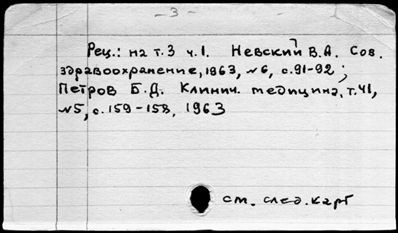 – 3 –
Рец.: на т.3 ч.1. Невский В.А. Сов.
здравоохранение, 1963, №6, с.91-92;
Петров Б.Д. Клинич. медицина, т.41,
№5, с.159-158, 1963
см. след. карт